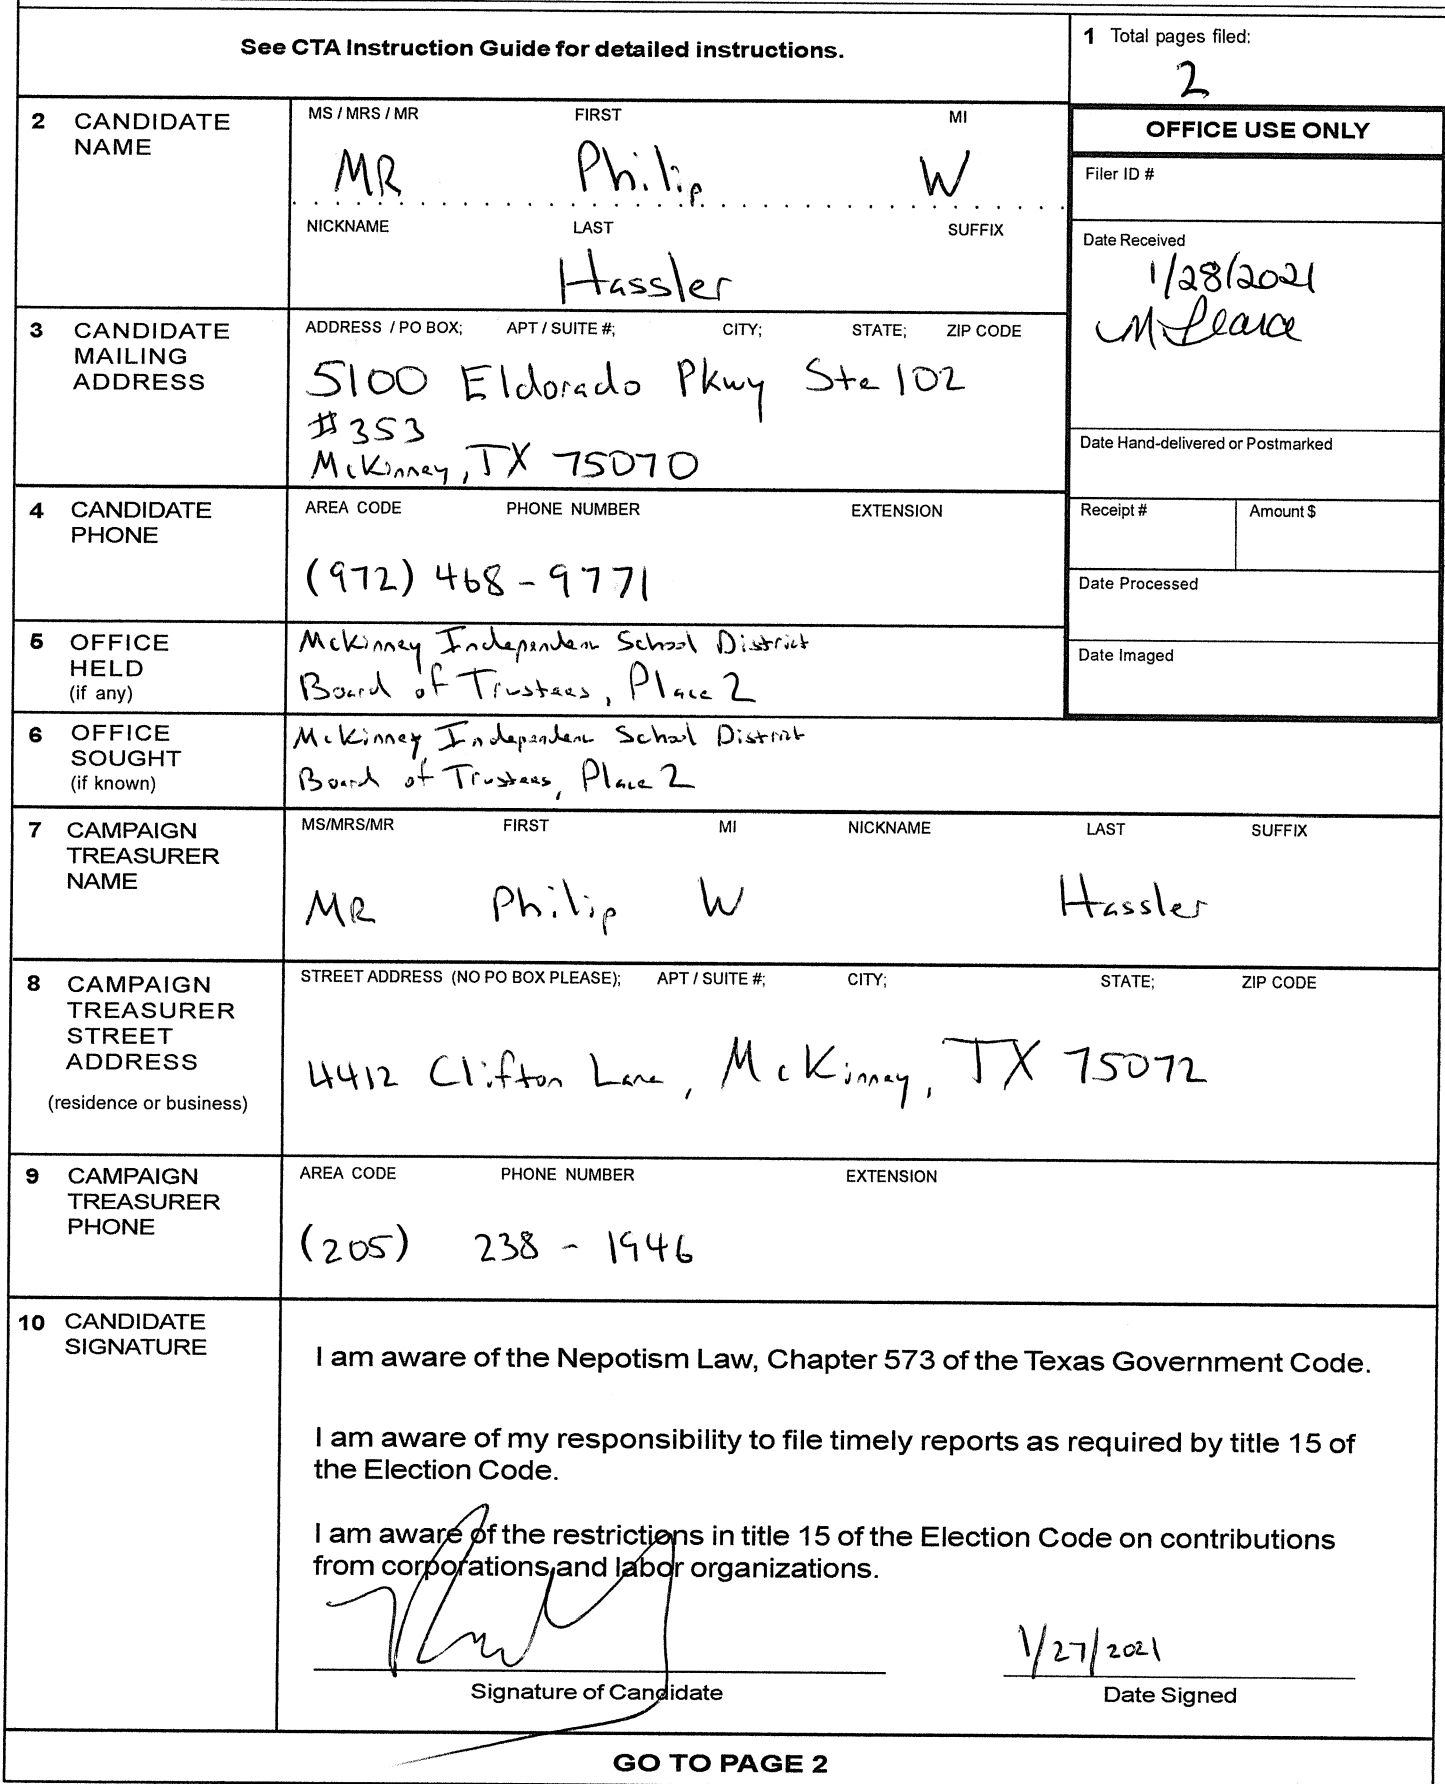 See CTA Instruction Guide for detailed instructions.
1 Total pages filed:
2
2 CANDIDATE NAME
MS / MRS / MR FIRST MI
MR Philip W
NICKNAME LAST SUFFIX
Hassler
OFFICE USE ONLY
Filer ID #
Date Received
1/28/2021
M Pearce
Date Hand-delivered or Postmarked
Receipt # Amount $
Date Processed
Date Imaged
3 CANDIDATE MAILING ADDRESS
ADDRESS / PO BOX; APT / SUITE #; CITY; STATE; ZIP CODE
5100 Eldorado Pkwy Ste 102
#353
McKinney, TX 75070
4 CANDIDATE PHONE
AREA CODE PHONE NUMBER EXTENSION
(972) 468-9771
5 OFFICE HELD (if any)
McKinney Independent School District
Board of Trustees, Place 2
6 OFFICE SOUGHT (if known)
McKinney Independent School District
Board of Trustees, Place 2
7 CAMPAIGN TREASURER NAME
MS/MRS/MR FIRST MI NICKNAME LAST SUFFIX
MR Philip W Hassler
8 CAMPAIGN TREASURER STREET ADDRESS (residence or business)
STREET ADDRESS (NO PO BOX PLEASE); APT / SUITE #; CITY; STATE; ZIP CODE
4412 Clifton Lane, McKinney, TX 75072
9 CAMPAIGN TREASURER PHONE
AREA CODE PHONE NUMBER EXTENSION
(205) 238 - 1946
10 CANDIDATE SIGNATURE
I am aware of the Nepotism Law, Chapter 573 of the Texas Government Code.
I am aware of my responsibility to file timely reports as required by title 15 of
the Election Code.
I am aware of the restrictions in title 15 of the Election Code on contributions
from corporations and labor organizations.
1/27/2021
Signature of Candidate Date Signed
GO TO PAGE 2